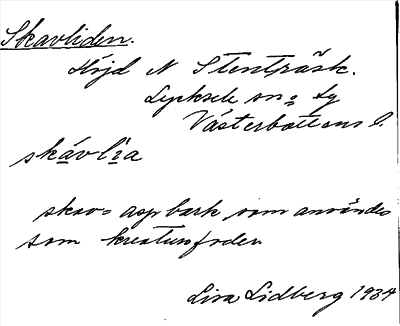 Skavliden.
Höjd N Stenträsk.
Lycksele sn o. tg
Västerbottens l.
skávlía
skav= aspbark som användes
som kreatursfoder
Lisa Lidberg 1934